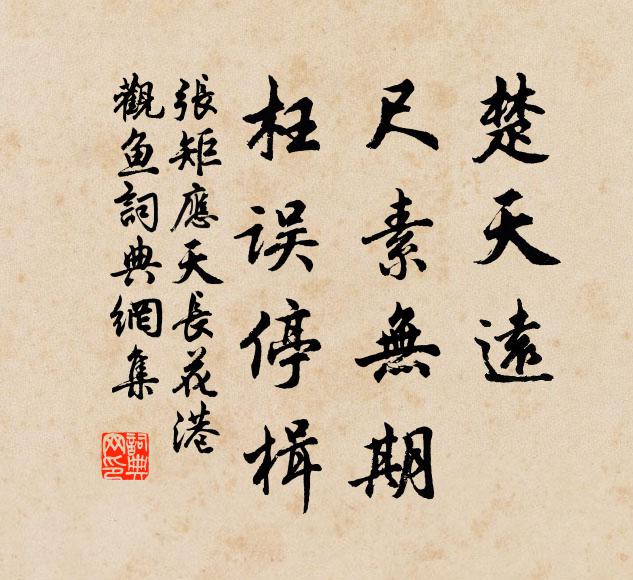 楚天遠
尺素無期
枉误停楫
張矩應天長花港
觀鱼詞典網集
詞典网印